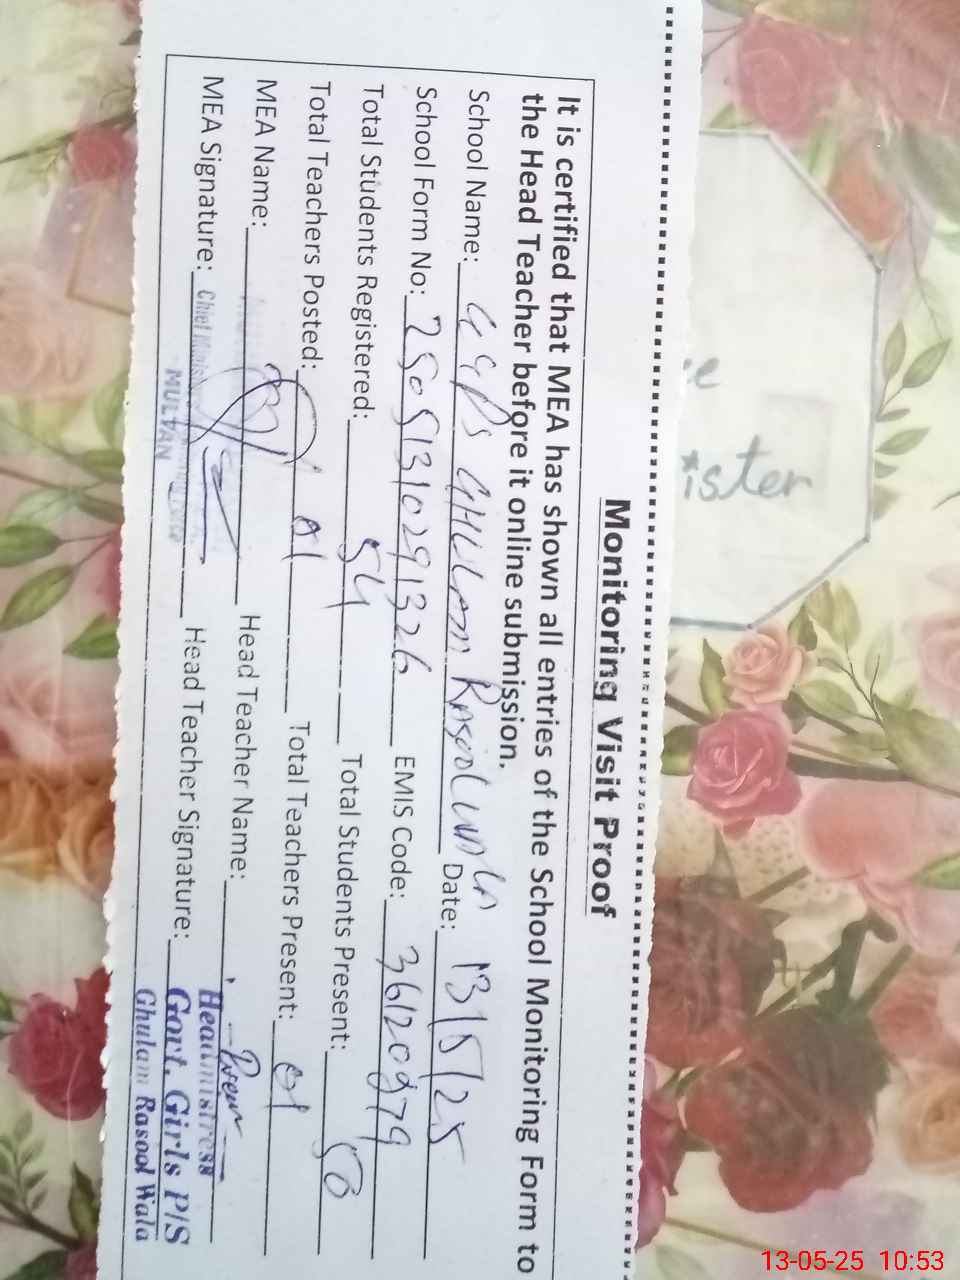 Monitoring Visit Proof
It is certified that MEA has shown all entries of the School Monitoring Form to
the Head Teacher before it online submission.
School Name: GGPS GHULAM Rasool Date: 13/5/25
School Form No: 25051310291326 EMIS Code:
Total Students Registered: 54 Total Students Present: 50
Total Teachers Posted: 01 Total Teachers Present: 01
MEA Name: Head Teacher Name:
MEA Signature: Head Teacher Signature:
MULTAN
Headmistress
Govt. Girls P/S
Ghulam Rasool Wala
ister
13-05-25 10:53